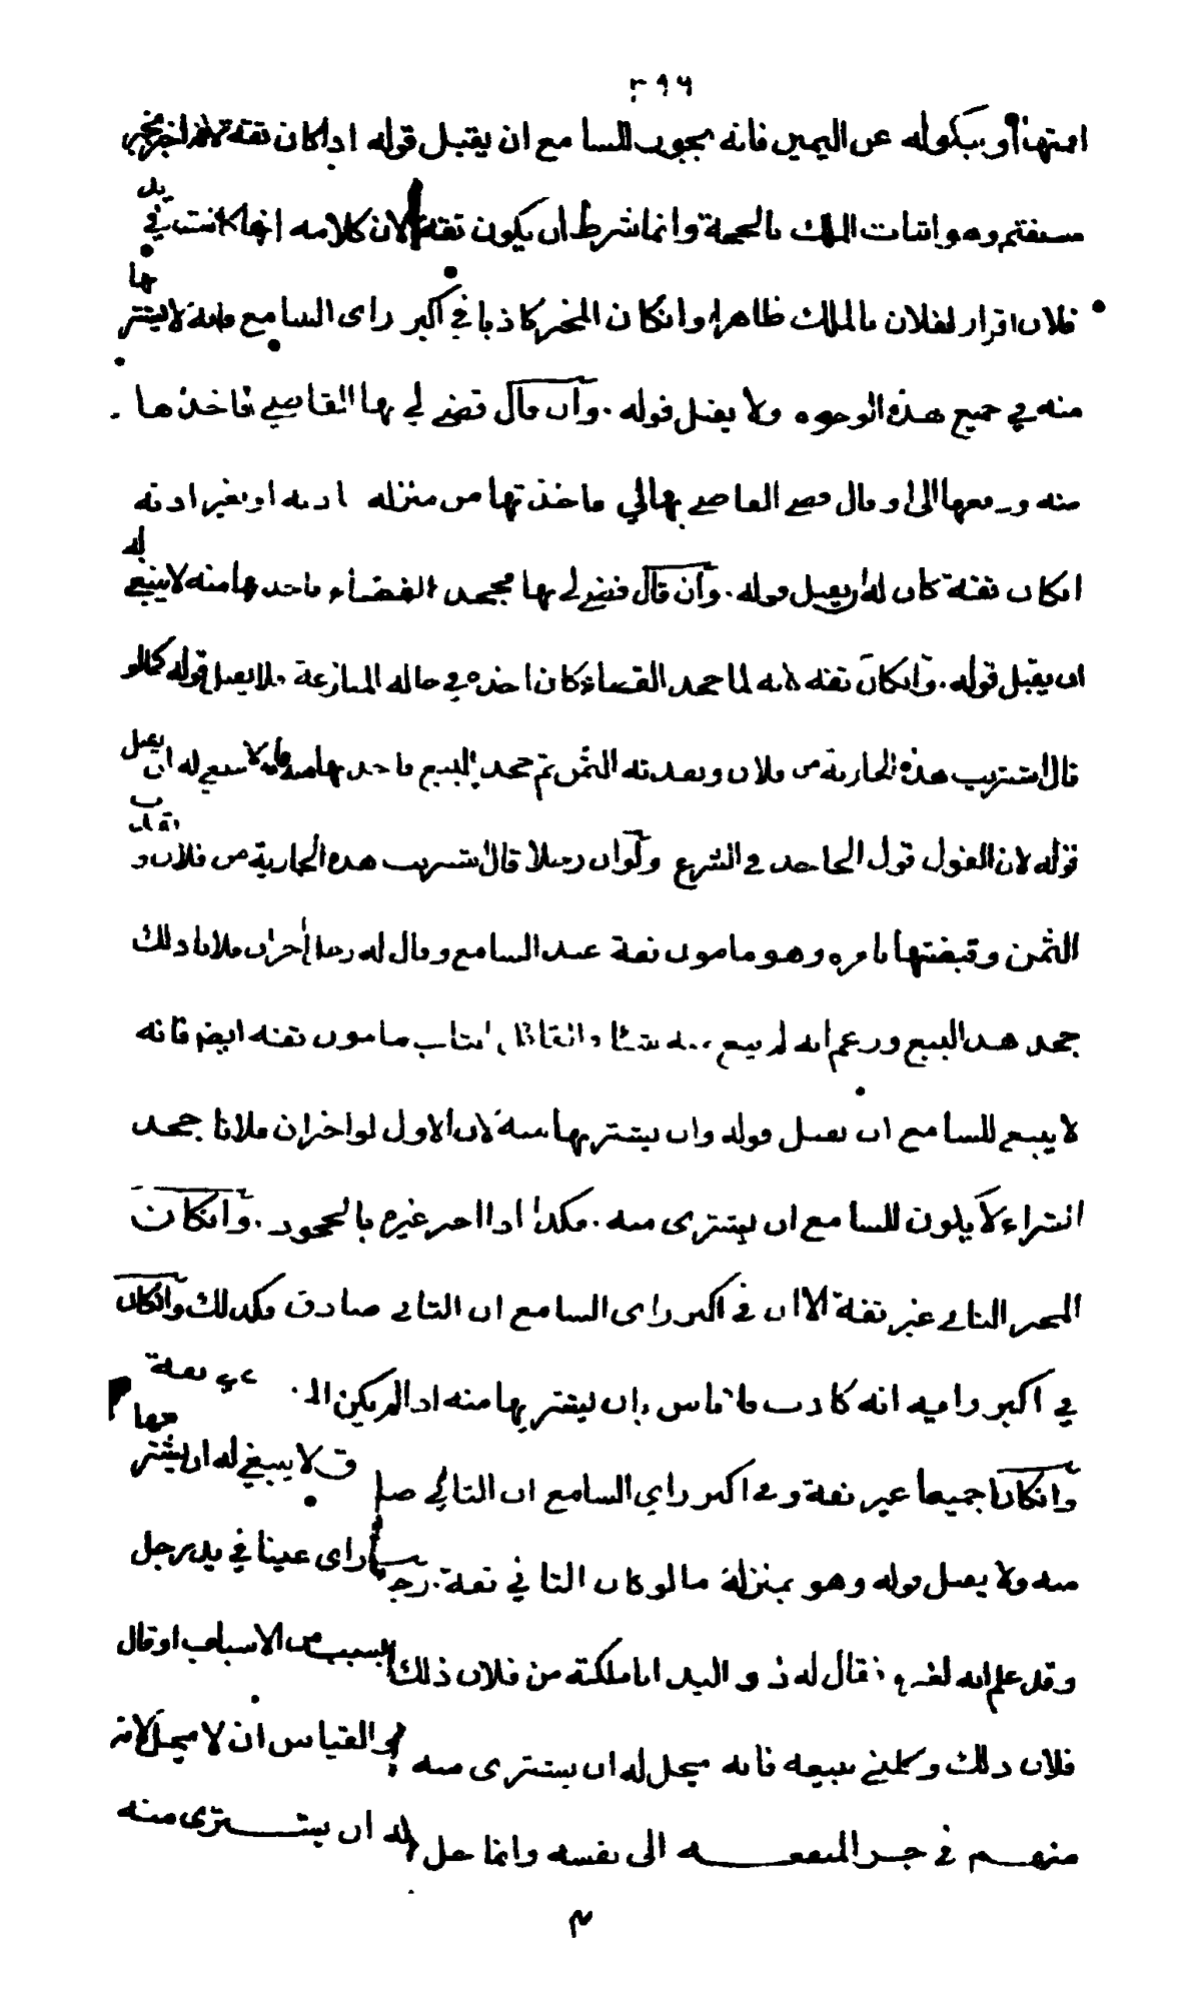 ٣٩٦
اقمتها او بنكوله عن اليمين فانه يجوز للسامع ان يقبل قوله اذا كان ثقة لانه اخبر بخبر
مستقيم وهو اثبات الملك بالحجة وانما شرط ان يكون ثقة لان كلامه انها كانت في يد
فلان اقرار لفلان بالملك ظاهرا وانكان المخبر كاذبا في اكبر راى السامع فانه لا يشتريها
منه في جميع هذه الوجوه ولا يقبل قوله . وان قال قضى لي بها القاضي فاخذها
منه ودفعها الى او قال قضى القاضي بها لي فاخذتها من منزله باذنه او بغير اذنه
انكان ثقة كان له ان يقبل قوله . وان قال قضى لي بها فجحد القضاء فاخذتها منه لا ينبغي له
ان يقبل قوله . وانكان ثقة لانه لما جحد القضاء كان اخذه في حالة المنازعة فلا يقبل قوله كما لو
قال اشتريت هذه الجارية من فلان ونقدته الثمن ثم جحد البيع فاخذتها منه فانه لا ينبغي له ان يقبل
قوله لان القول قول الجاحد في الشرع ولو ان رجلا قال اشتريت هذه الجارية من فلان ونقدت
الثمن وقبضتها بامره وهو مامون ثقة عند السامع وقال له رجل اخر ان فلانا ذلك
جحد هذا البيع وزعم انه لم يبع منه شيئا والقائل الثانى مامون ثقة ايضا فانه
لا ينبغي للسامع ان يقبل قوله وان يشتريها منه لان الاول لو اخبر ان فلانا جحد
الشراء لا يكون للسامع ان يشترى منه . فكذا اذا اخبر غيره بالجحود . وانكان
المخبر الثاني غير ثقة الا ان في اكبر راى السامع ان الثاني صادق فكذلك وانكان
في اكبر رايه انه كاذب فلا باس بان يشتريها منه اذا لم يكن الـ ثقة
وانكانا جميعا غير ثقة وفي اكبر راي السامع ان الثاني صادق لا ينبغي له ان يشتريها
منه ولا يقبل قوله وهو بمنزلة ما لو كان الثاني ثقة . رجل راى عينا في يد رجل
وقد علم انه لغيره فقال له ذو اليد انا ملكته من فلان ذلك بسبب من الاسباب او قال
فلان ذلك وكلني ببيعه فانه يحل له ان يشترى منه والقياس ان لا يحل لانه
متهم في جر المنفعه الى نفسه وانما حل له ان يشترى منه